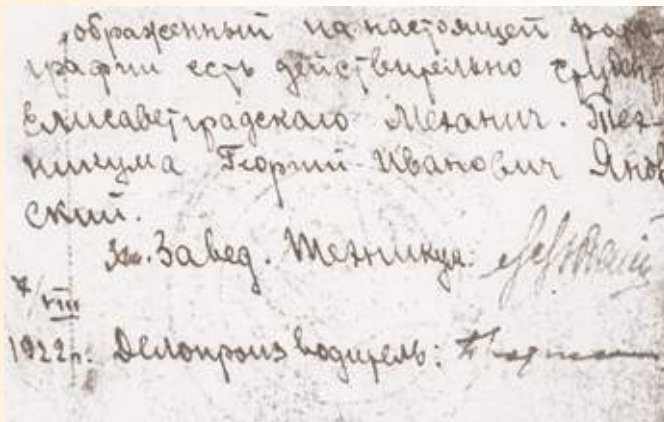 ображенный на настоящей фото-
графии есть действительно студен
Елисаветградскаго Механич. Тех-
никума Георгий Иванович Янов
ский.
Зав. Завед. Техникум:
7/VIII
1922г. Делопроизводитель: